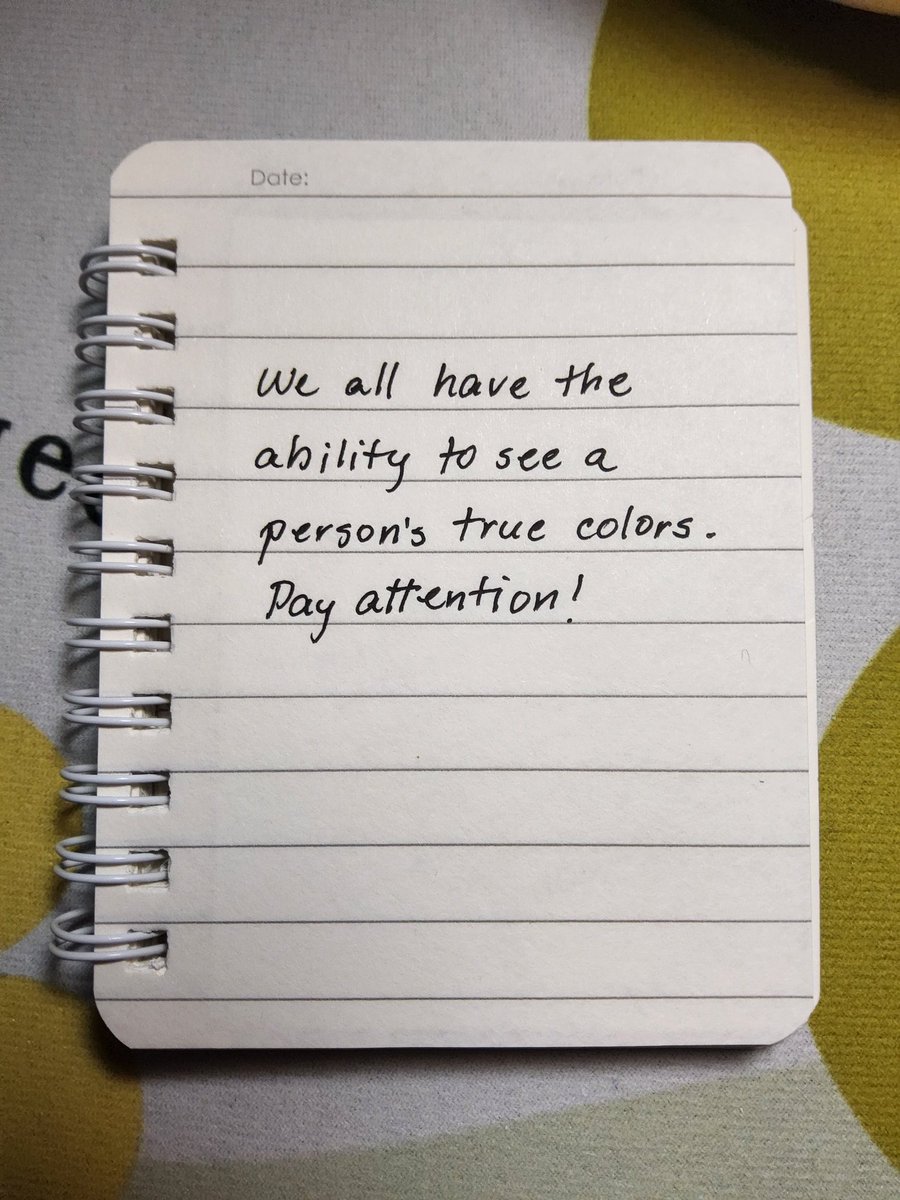 Date:
We all have the
ability to see a
person's true colors.
Pay attention!